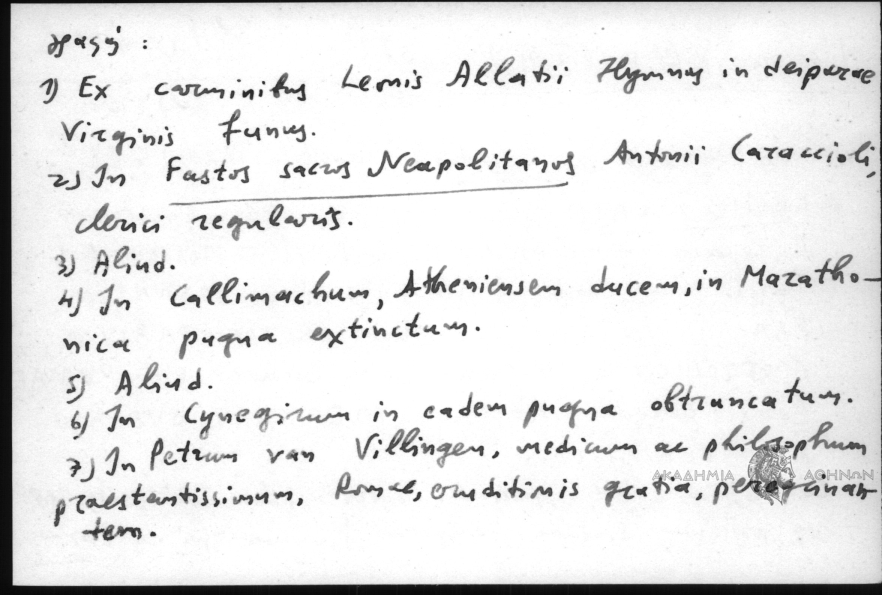 1) Ex carminibus Leonis Allatii Hymnus in deiparae
Virginis funus.
2) In Fastos sacros Neapolitanos Antonii Caraccioli,
clerici regularis.
3) Aliud.
4) In Callimachum, Atheniensem ducem, in Maratho-
nica pugna extinctum.
5) Aliud.
6) In Cynegirum in eadem pugna obtruncatum.
7) In Petrum van Villingen, medicum ac philosophum
ΑΚΑΔΗΜΙΑ ΑΘΗΝΩΝ
praestantissimum, Romae, eruditionis gratia, peregrinan
tem.